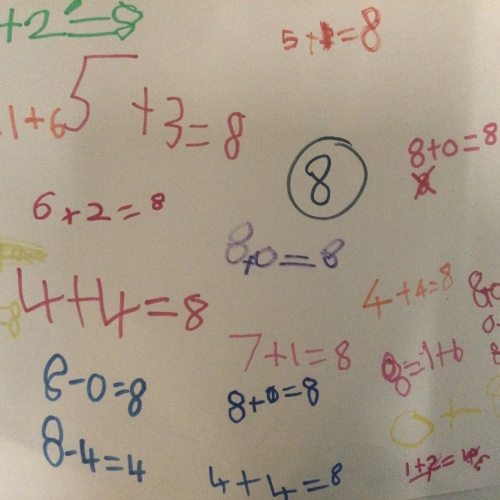 +2=8
5+1=8
1+6
5+3=8
8
8+0=8
8
6+2=8
8+0=8
4+4=8
4+4=8
7+1=8
8=1+6
8-0=8
8+0=8
0+
8-4=4
4+4=8
1+2=